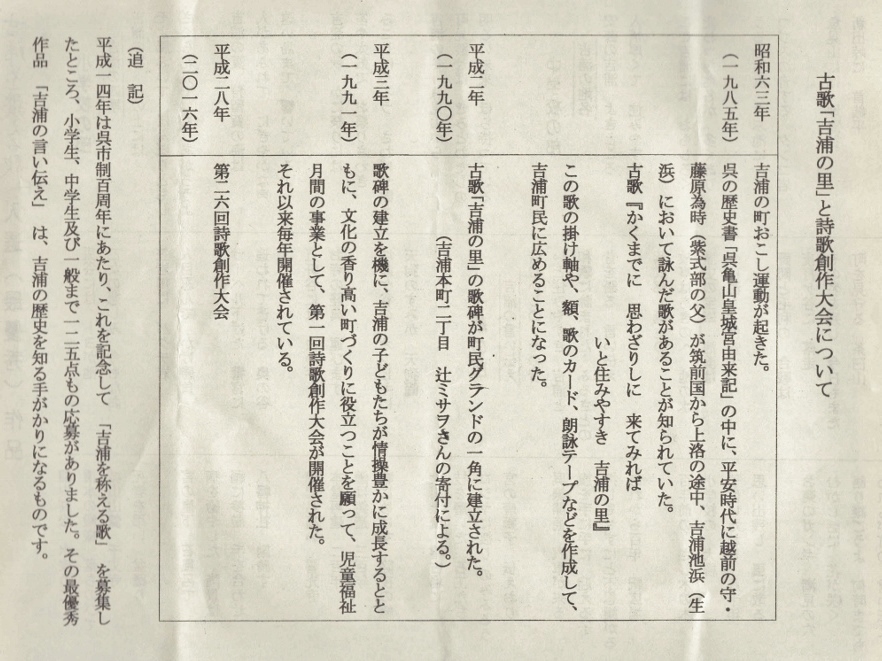 古歌「吉浦の里」と詩歌創作大会について
昭和六三年
（一九八五年）
吉浦の町おこし運動が起きた。
呉の歴史書「呉亀山皇城宮由来記」の中に、平安時代に越前の守・
藤原為時（紫式部の父）が筑前国から上洛の途中、吉浦池浜（生
浜）において詠んだ歌があることが知られていた。
古歌『かくまでに　思わざりしに　来てみれば
いと住みやすき　吉浦の里』
この歌の掛け軸や、額、歌のカード、朗詠テープなどを作成して、
吉浦町民に広めることになった。
平成二年
（一九九〇年）
古歌「吉浦の里」の歌碑が町民グランドの一角に建立された。
（吉浦本町二丁目　辻ミサヲさんの寄付による。）
平成三年
（一九九一年）
歌碑の建立を機に、吉浦の子どもたちが情操豊かに成長するとと
もに、文化の香り高い町づくりに役立つことを願って、児童福祉
月間の事業として、第一回詩歌創作大会が開催された。
それ以来毎年開催されている。
平成二八年
（二〇一六年）
第二六回詩歌創作大会
（追　記）
平成一四年は呉市制百周年にあたり、これを記念して　「吉浦を称える歌」　を募集し
たところ、小学生、中学生及び一般まで一二五点もの応募がありました。その最優秀
作品　「吉浦の言い伝え」　は、吉浦の歴史を知る手がかりになるものです。